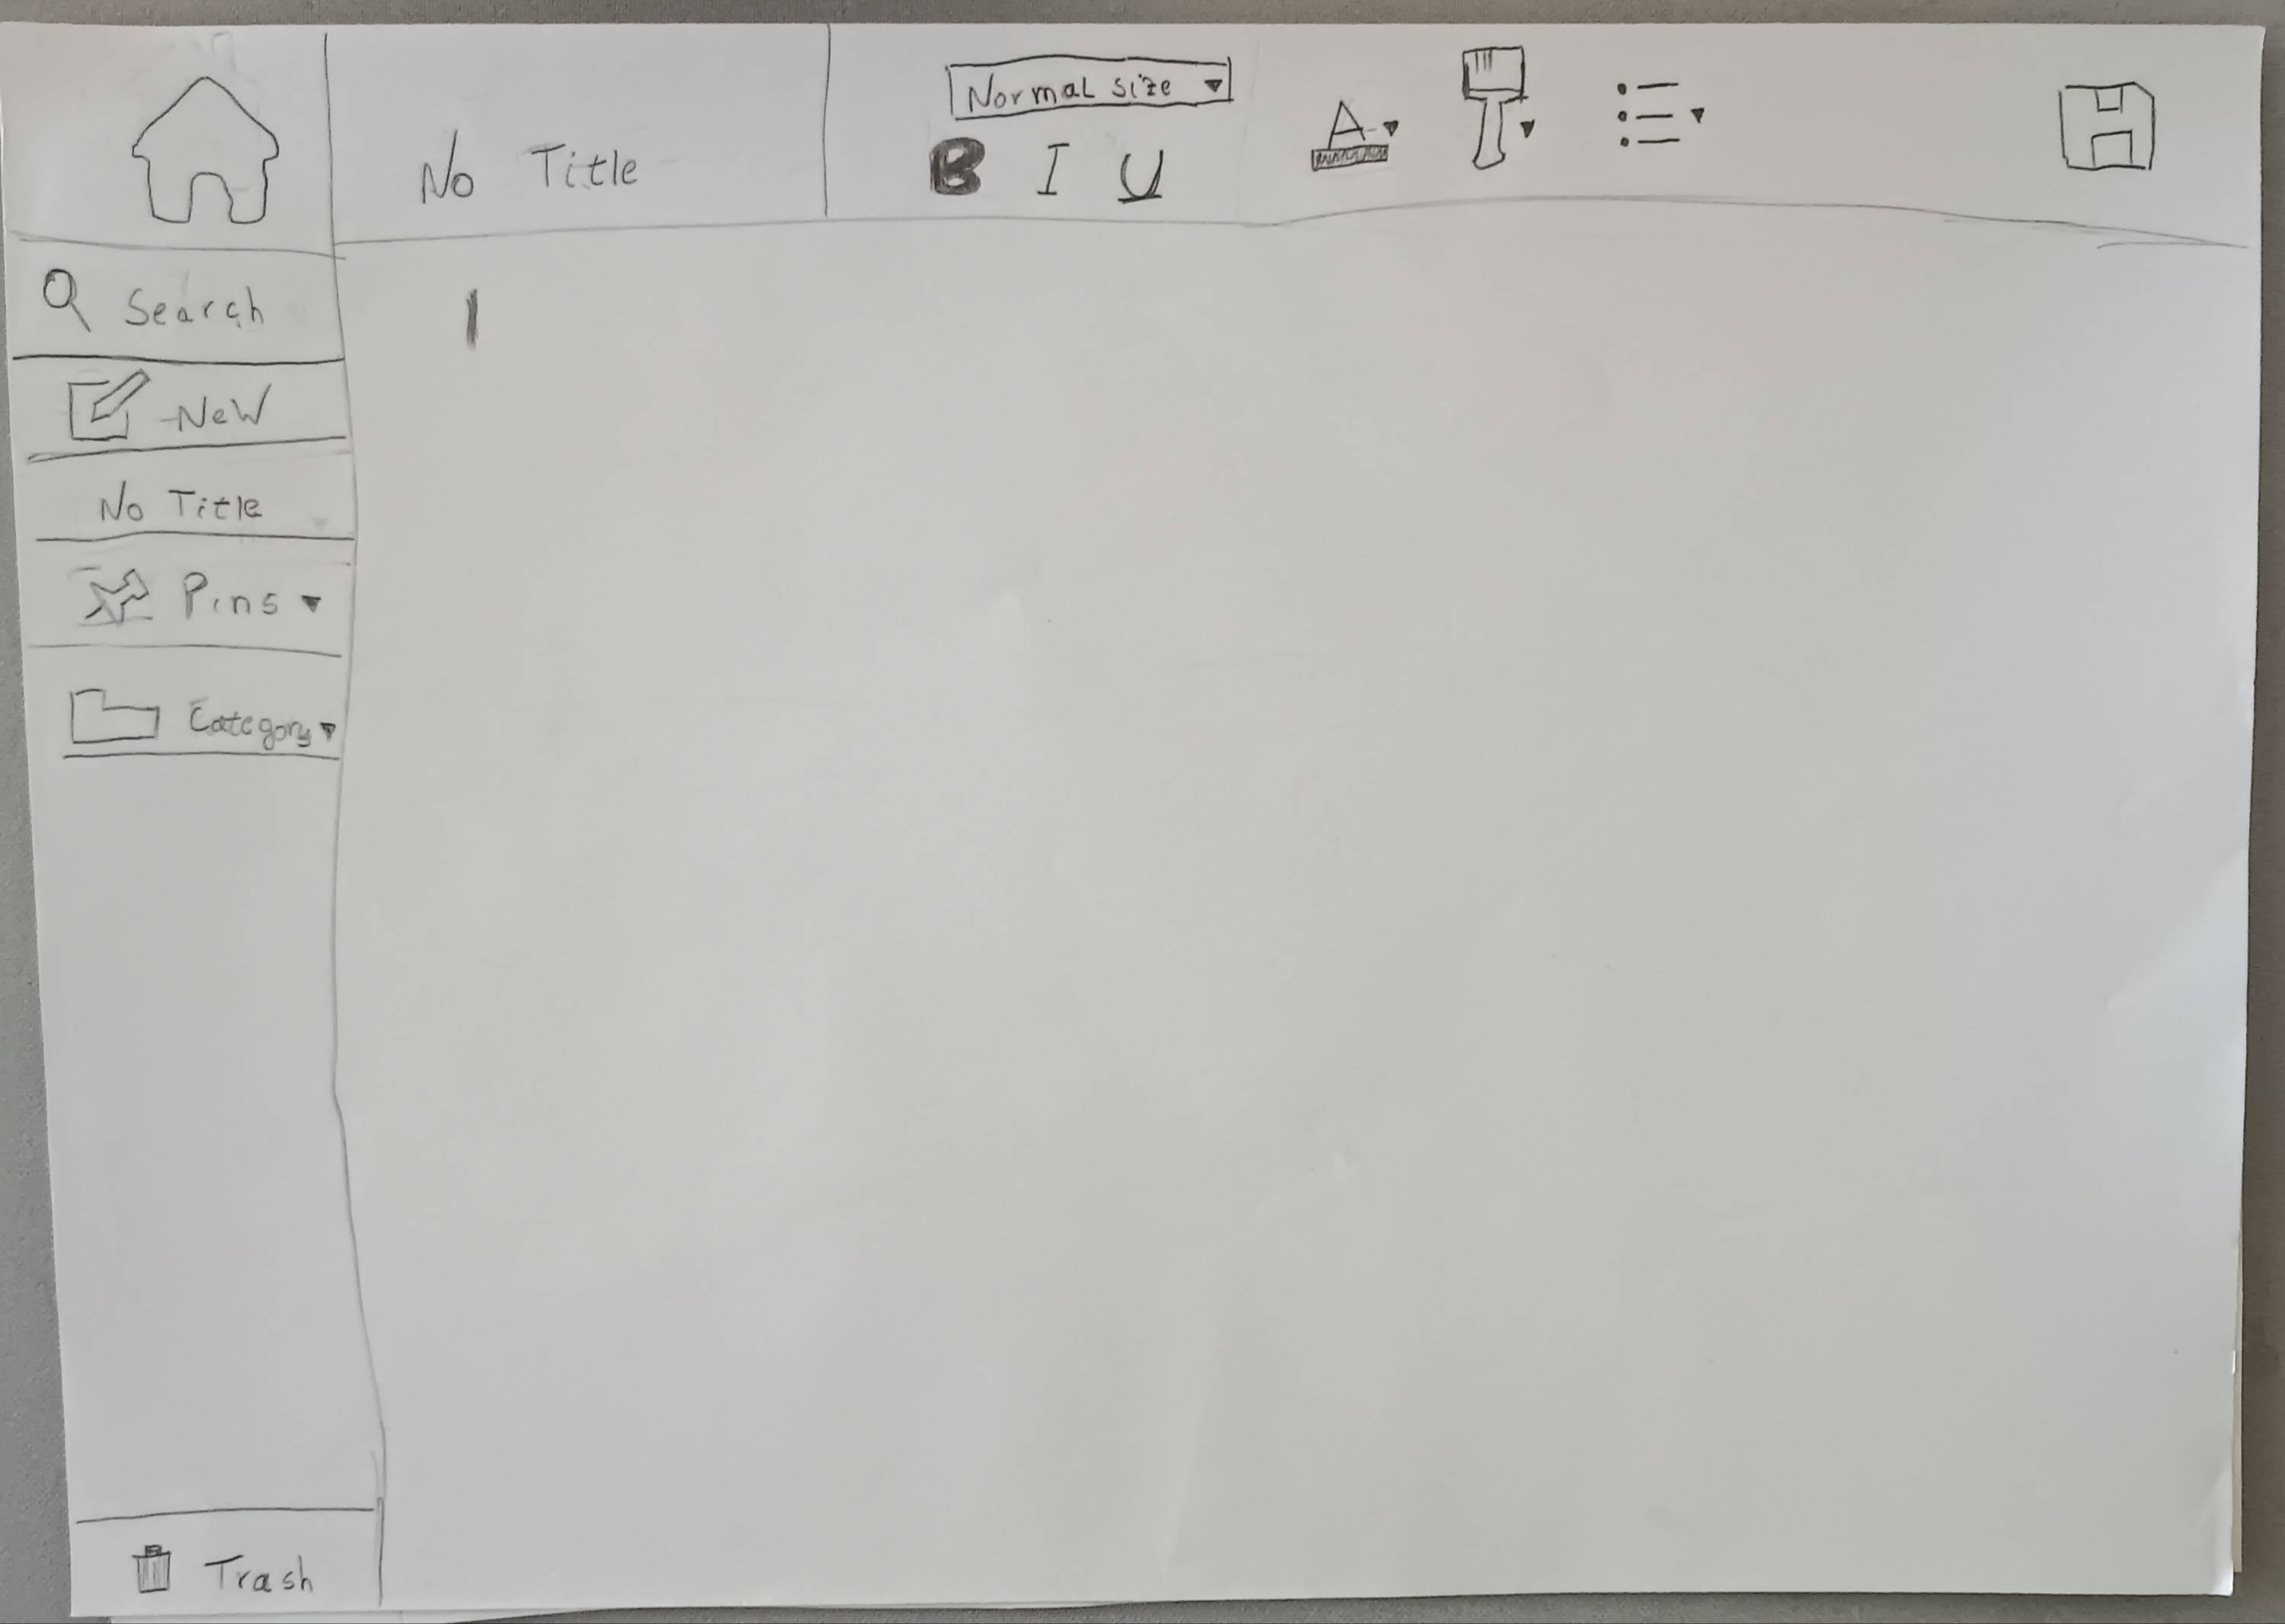 No Title
Normal size
B I U
A
Search
New
No Title
Pins
Category
Trash